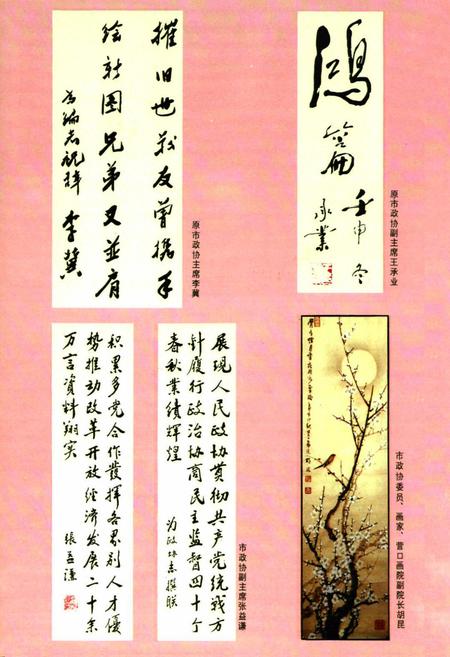 摧旧世 战友曾携手
绘新图 兄弟又並肩
为编志祝捧 李冀
原市政协主席李冀
鸿篇
壬申冬
承業
原市政协副主席王承业
展现人民政协贯彻共产党统战方
针履行政治协商民主监督四十个
春秋業绩辉煌
为政协志撰联
积累多党合作發挥各界别人才優
势推动改革开放经济发展二十余
万言資料翔实
張益谦
市政协副主席张益谦
市政协委员、画家、营口画院副院长胡昆